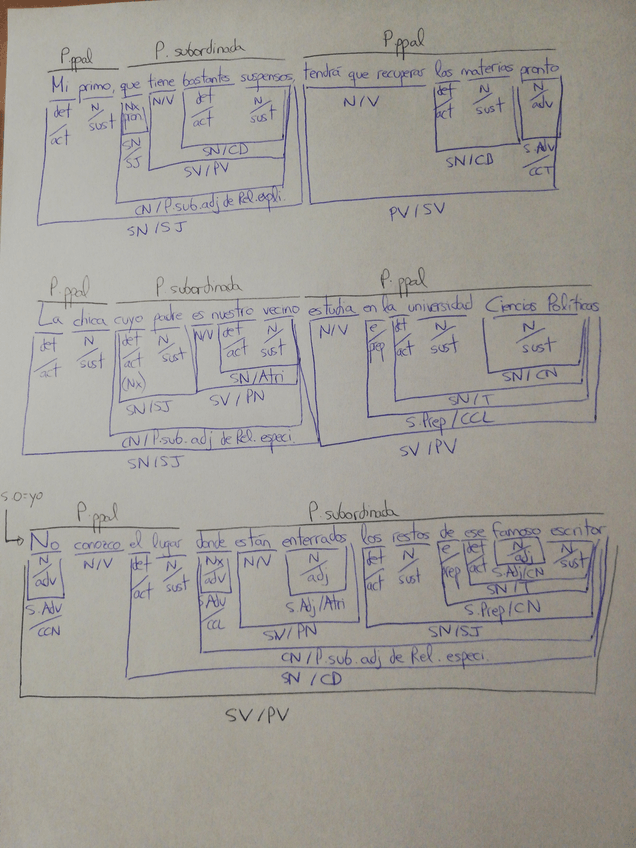 P. ppal P. subordinada P. ppal
Mi primo, que tiene bastantes suspensos, tendrá que recuperar las materias pronto
det/act N/sust Nx/pron N/V det/act N/sust N/V det/act N/sust N/adv
SN/SJ SN/CD SN/CD S.Adv/CCT
SV/PV
CN/P.sub.adj de Rel.expli.
SN/SJ PV/SV
P. ppal P subordinada P. ppal
La chica cuyo padre es nuestro vecino estudia en la universidad Ciencias Políticas
det/act N/sust det/act (Nx) N/sust N/V det/act N/sust N/V e/prep det/act N/sust N/sust
SN/SJ SN/Atri SN/CN
SV/PN SN/T
CN/P.sub.adj de Rel.especi. S.Prep/CCL
SN/SJ SV/PV
S.O=yo
P. ppal P. subordinada
No conozco el lugar donde están enterrados los restos de ese famoso escritor
N/adv N/V det/act N/sust Nx/adv N/V N/adj det/act N/sust e/prep det/act N/adj N/sust
S.Adv/CCN S.Adv/CCL S.Adj/Atri S.Adj/CN
SN/T
SV/PN S.Prep/CN
SN/SJ
CN/P.sub.adj de Rel.especi.
SN/CD
SV/PV